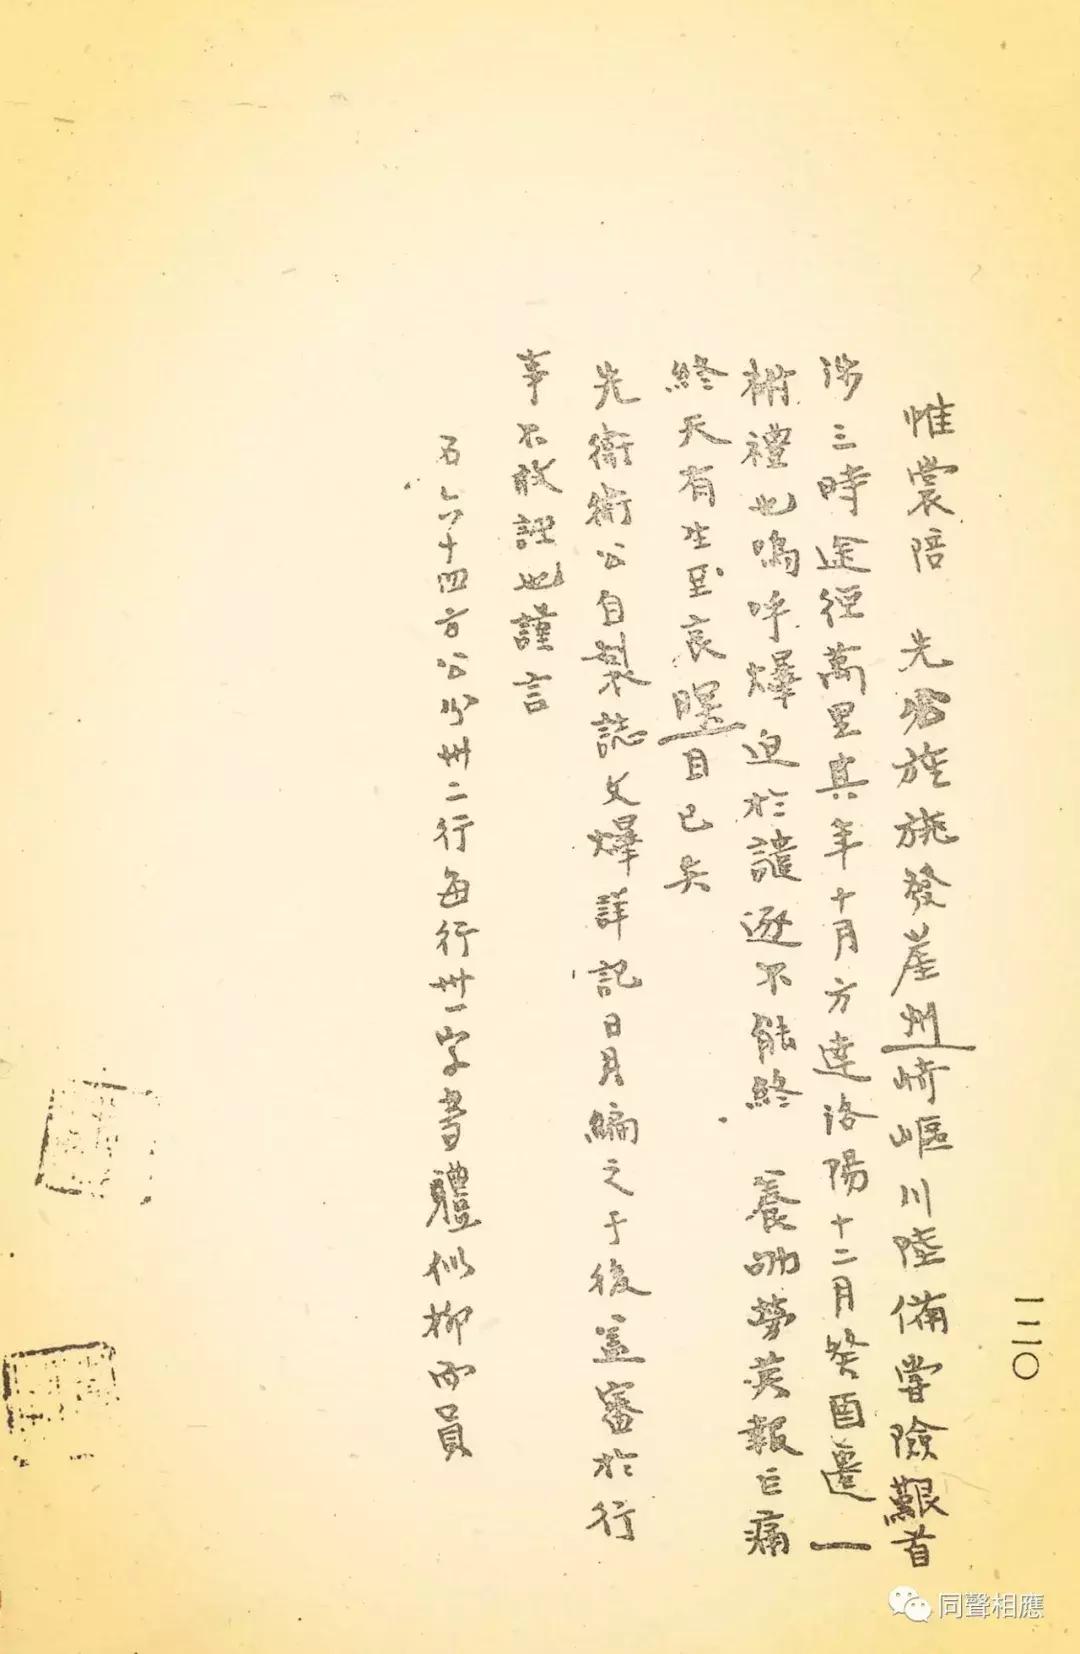 帷裳陪 先公旌旐發崖州崎嶇川陸備嘗險艱首
涉三時途徑萬里其年十月方達洛陽十二月癸酉遷
祔禮也嗚呼燁迫於譴逐不能終 養劬勞莫報巨痛
終天有生至哀瞑目已矣
先衛衛公自製誌文燁詳記日月編之于後蓋審於行
事不敢誣也謹言
石六十四方公分卅二行每行卅一字書體似柳而員
一二〇
同聲相應